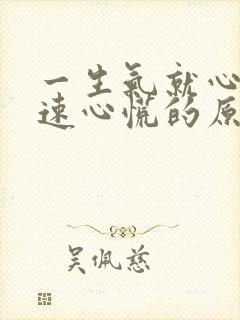 一生氣就心
速心慌的原
吴佩慈